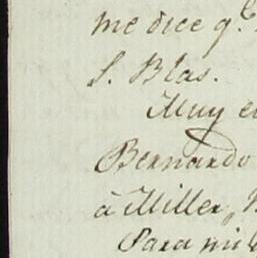 me dice q.e
S. Blas.
Muy
Bernardo
á Miller,
Para mi